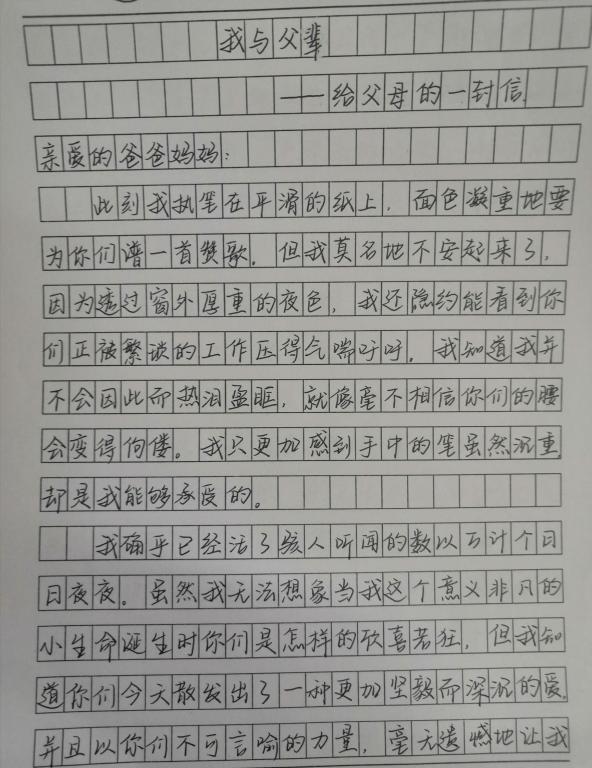 我与父辈
——给父母的一封信
亲爱的爸爸妈妈：
此刻我执笔在平滑的纸上，面色凝重地要
为你们谱一首赞歌。但我莫名地不安起来了，
因为透过窗外厚重的夜色，我还隐约能看到你
们正被繁琐的工作压得气喘吁吁。我知道我并
不会因此而热泪盈眶，就像毫不相信你们的腰
会变得佝偻。我只更加感到手中的笔虽然沉重，
却是我能够承受的。
我确乎已经活了骇人听闻的数以万计个日
日夜夜。虽然我无法想象当我这个意义非凡的
小生命诞生时你们是怎样的欣喜若狂，但我知
道你们今天散发出了一种更加坚毅而深沉的爱，
并且以你们不可言喻的力量，毫无遗憾地让我